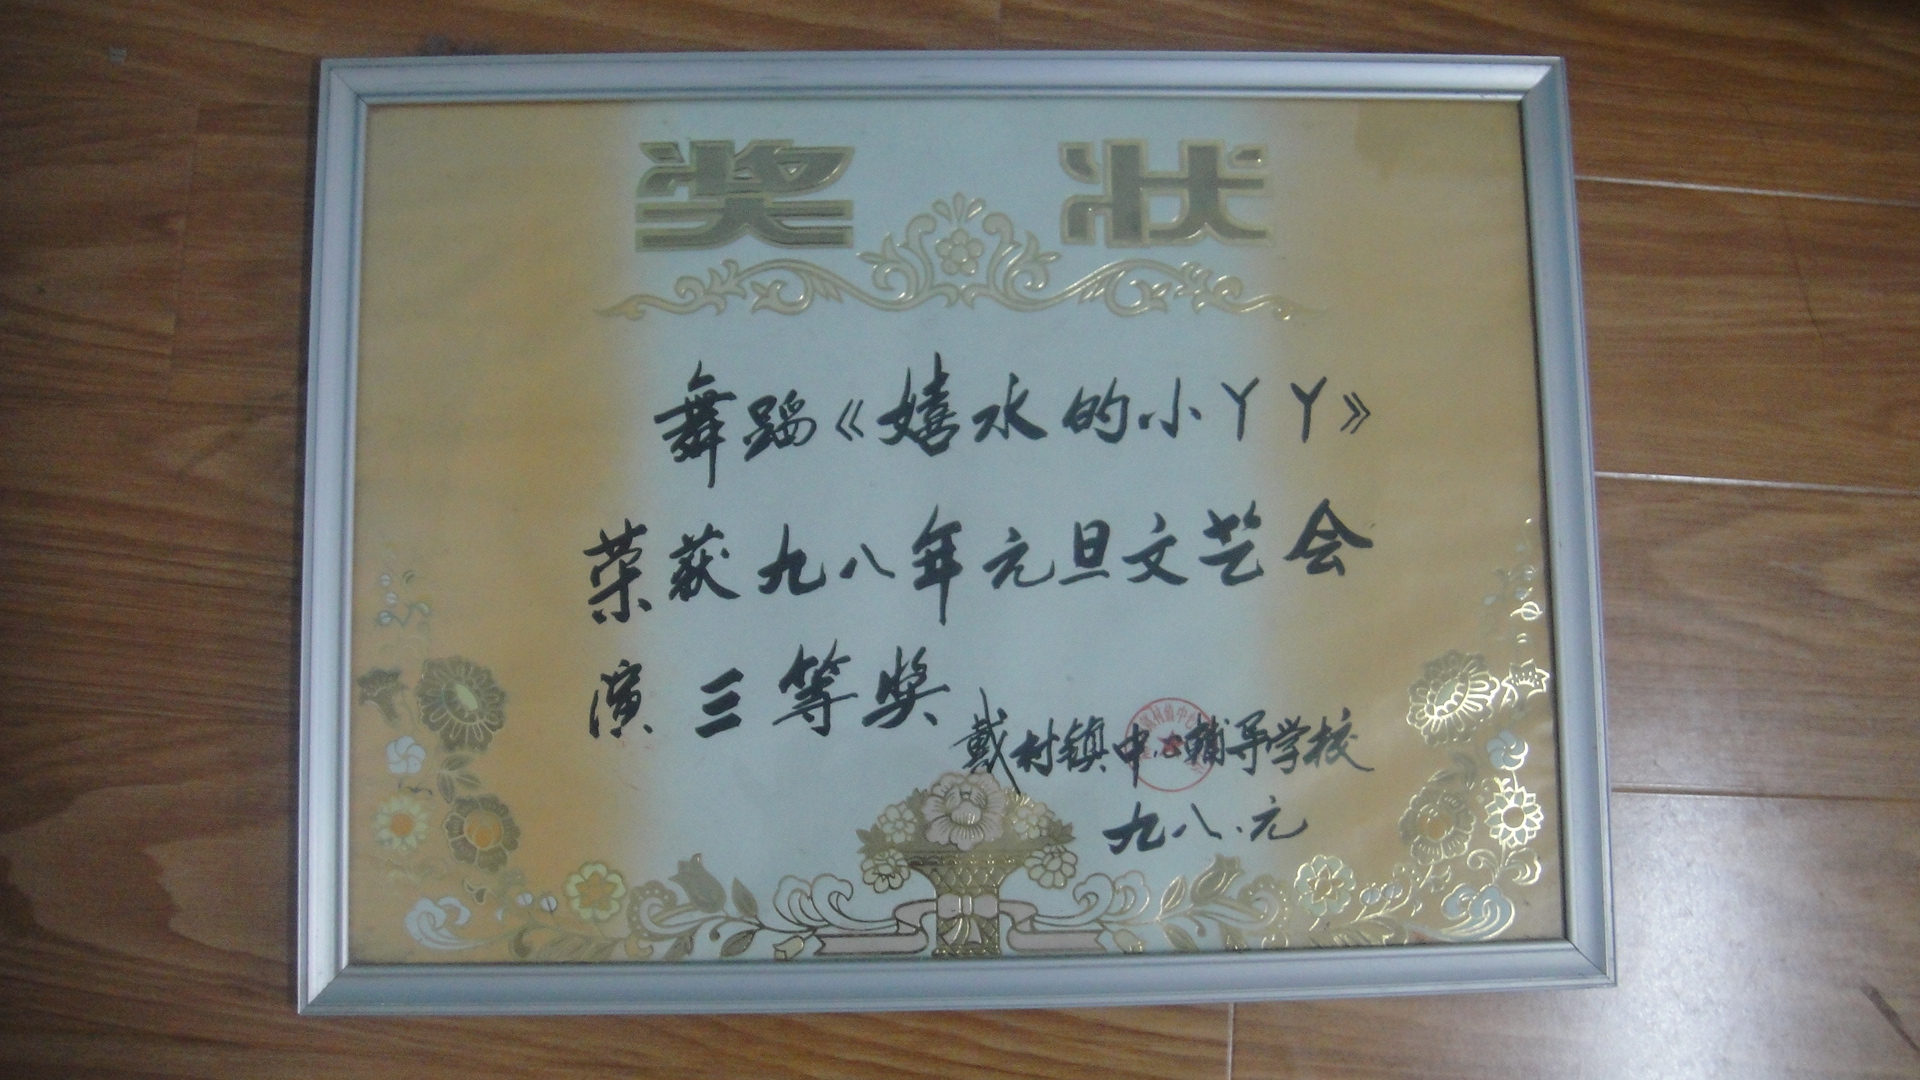 奖 状
舞蹈《嬉水的小丫丫》
荣获九八年元旦文艺会
演三等奖
戴村镇中心辅导学校
九八.元